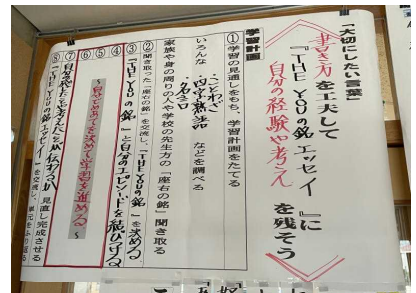 「大切にしたい言葉」
書き方を工夫して
『THE YOUの銘エッセイ』に
自分の経験や考え
を残そう
学習計画
①学習の見通しをもち、学習計画をたてる
いろんな
ことわざ
四字熟語
名言
などを調べる
家族や身の周りの人や学校の先生方の「座右の銘」聞き取る
②聞き取った「座右の銘」を交流し、「THE YOUの銘」を決める
③
④
『THE YOUの銘』と自分のエピソードを結びつける
⑤
⑥
～自分でめあてを決めて学習を進める～
⑦
自分の
考えたことが伝わるか
見直し完成させる
⑧『THE YOUの銘エッセイ』を交流し、単元をふり返る